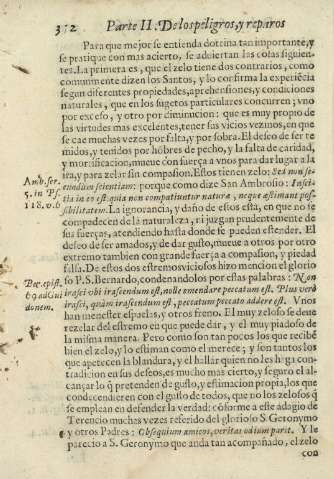 312 Parte II. De los peligros, y reparos
Para que mejor se entienda dotrina tan importante, y
se pratique con mas acierto, se aduiertan las cosas siguien-
tes. La primera es, que el zelo tiene dos contrarios, como
comunmente dizen los Santos, y lo confirma la experiẽcia
segun diferentes propiedades, aprehensiones, y condiciones
naturales, que en los sugetos particulares concurren; vno
por excesso, y otro por diminucion: que es muy propio de
las virtudes mas excelentes, tener sus vicios vezinos, en que
se cae muchas vezes por falta, y por sobra. El desseo de ser te
midos, y tenidos por hõbres de pecho, y la falta de caridad,
y mortificacion, mueue con fuerça a vnos para dar lugar a la
ira, y para zelar sin compasion. Estos tienen zelo: Sed non se-
cundum scientiam: porque como dize San Ambrosio: Insci-
Amb. ser.
5. in Ps.
118. o. 8.
tia in eo est quia non compatiuntur natura, neque estimant pos-
sibilitatem. La ignorancia, y daño de essos està, en que no se
compadecen de la naturaleza, ni juzgan prudentemente de
sus fuerças, atendiendo hasta donde se pueden estender. El
desseo de ser amados, y de dar gusto, mueue a otros por otro
extremo tambien con grande fuerça a compasion, y piedad
falsa. De estos dos estremos viciosos hizo mencion el glorio
so P.S. Bernardo, condenandolos por estas palabras: Non
irasci vbi irascendum est, nolle emendare peccatum est. Plus verò
irasci, quàm irascendum est, peccatum peccato addere est. Vnos
donem.
han menester espuelas, y otros freno. El muy zeloso se deue
rezelar del estremo en que puede dar, y el muy piadoso de
la misma manera. Pero como son tan pocos los que recibẽ
bien el zelo, y lo estiman como el merece; y son tantos los
que apetecen la blandura, y el hallar quien no les haga con-
tradicion en sus deseos, es mucho mas cierto, y seguro el al-
cançar lo q̃ pretenden de gusto, y estimacion propia, los que
condecendieren con el gusto de todos, que no los zelosos q̃
se emplean en defender la verdad: cõforme a este adagio de
Terencio muchas vezes referido del glorioso S. Geronymo
y otros Padres: Obsequium amicos, veritas odium parit. Y le
pareciò a S. Geronymo que anda tan acompañado, el zelo
con